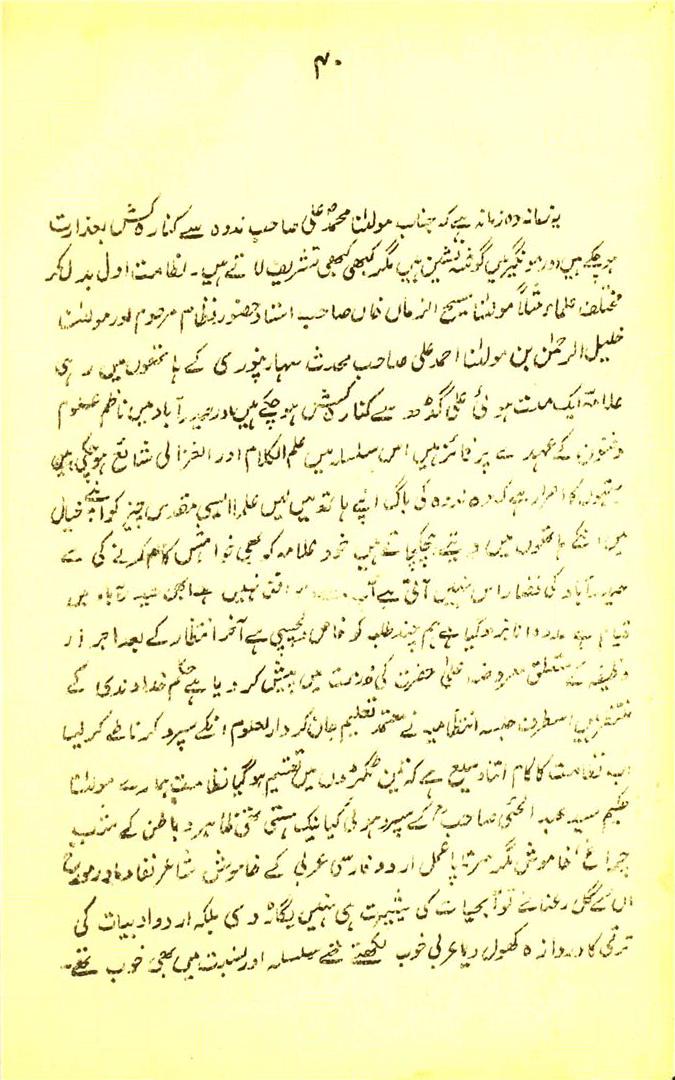 ۴۰
یہ زمانہ وہ زمانہ ہے کہ جناب مولانا محمد علی صاحب ندوہ سے کنارہ کش بعذارت
ہو چکے ہیں اور مونگیر میں گوشہ نشین ہیں مگر کبھی کبھی تشریف لاتے ہیں۔ نظامت اول بدل کر
مختلف علماء مثلاً مولانا مسیح الزماں خاں صاحب استاد حضور نظام مرحوم اور مولانا
خلیل الرحمٰن بن مولانا احمد علی صاحب محدث سہارنپوری کے ہاتھوں میں رہی
علامہ ایک مدت ہوئی علی گڈھ سے کنارہ کش ہو چکے ہیں اور حیدرآباد میں ناظم علوم
و فنون کے عہدے پر فائز ہیں اس سلسلہ میں علم الکلام اور الغزالی شائع ہو چکی ہیں
کا اصرار ہے کہ وہ ندوہ کی باگ اپنے ہاتھ میں لیں علما ایسی مقدس چیز کو اپنے خیال
میں انکے ہاتھوں میں دیتے ہچکچاتے ہیں خود علامہ کو بھی خواہش کام کرنے کی ہے
حیدرآباد کی فضا راس نہیں آئی ہے آب موافق نہیں ہے ابھی حیدرآباد میں
قیام ہے ہم چند طلبہ کو خاص دلچسپی ہے آخر انتظار کے بعد اجراء
وظیفہ کے متعلق معروضہ اعلیٰ حضرت کی خدمت میں پیش کر دیا ہے حکم خداوندی کے
منتظر ہیں اسطرف جلسہ انتظامیہ نے معتمد تعلیم جان کر دارالعلوم انکے سپرد کرنا طے کر لیا
اب نظامت کا کام اتنا وسیع ہے کہ تین ٹکڑوں میں تقسیم ہو گیا نظامت ہمارے مولانا
حکیم سید عبد الحئی صاحب کے سپرد ہوئی گیا نیک ہستی تھی ظاہر و باطن کے مذہب
چراغ خاموش مگر سرتاپا عمل اردو فارسی عربی کے خاموش شاعر نقاد اور مورخ
ان کے گل رعنا نے تو آبحیات کی حیثیت ہی نہیں بگاڑ دی بلکہ اردو ادبیات کی
ترقی کا دروازہ کھول دیا عربی خوب لکھتے تھے سلسلہ اور نسبت میں بھی خوب تھے۔